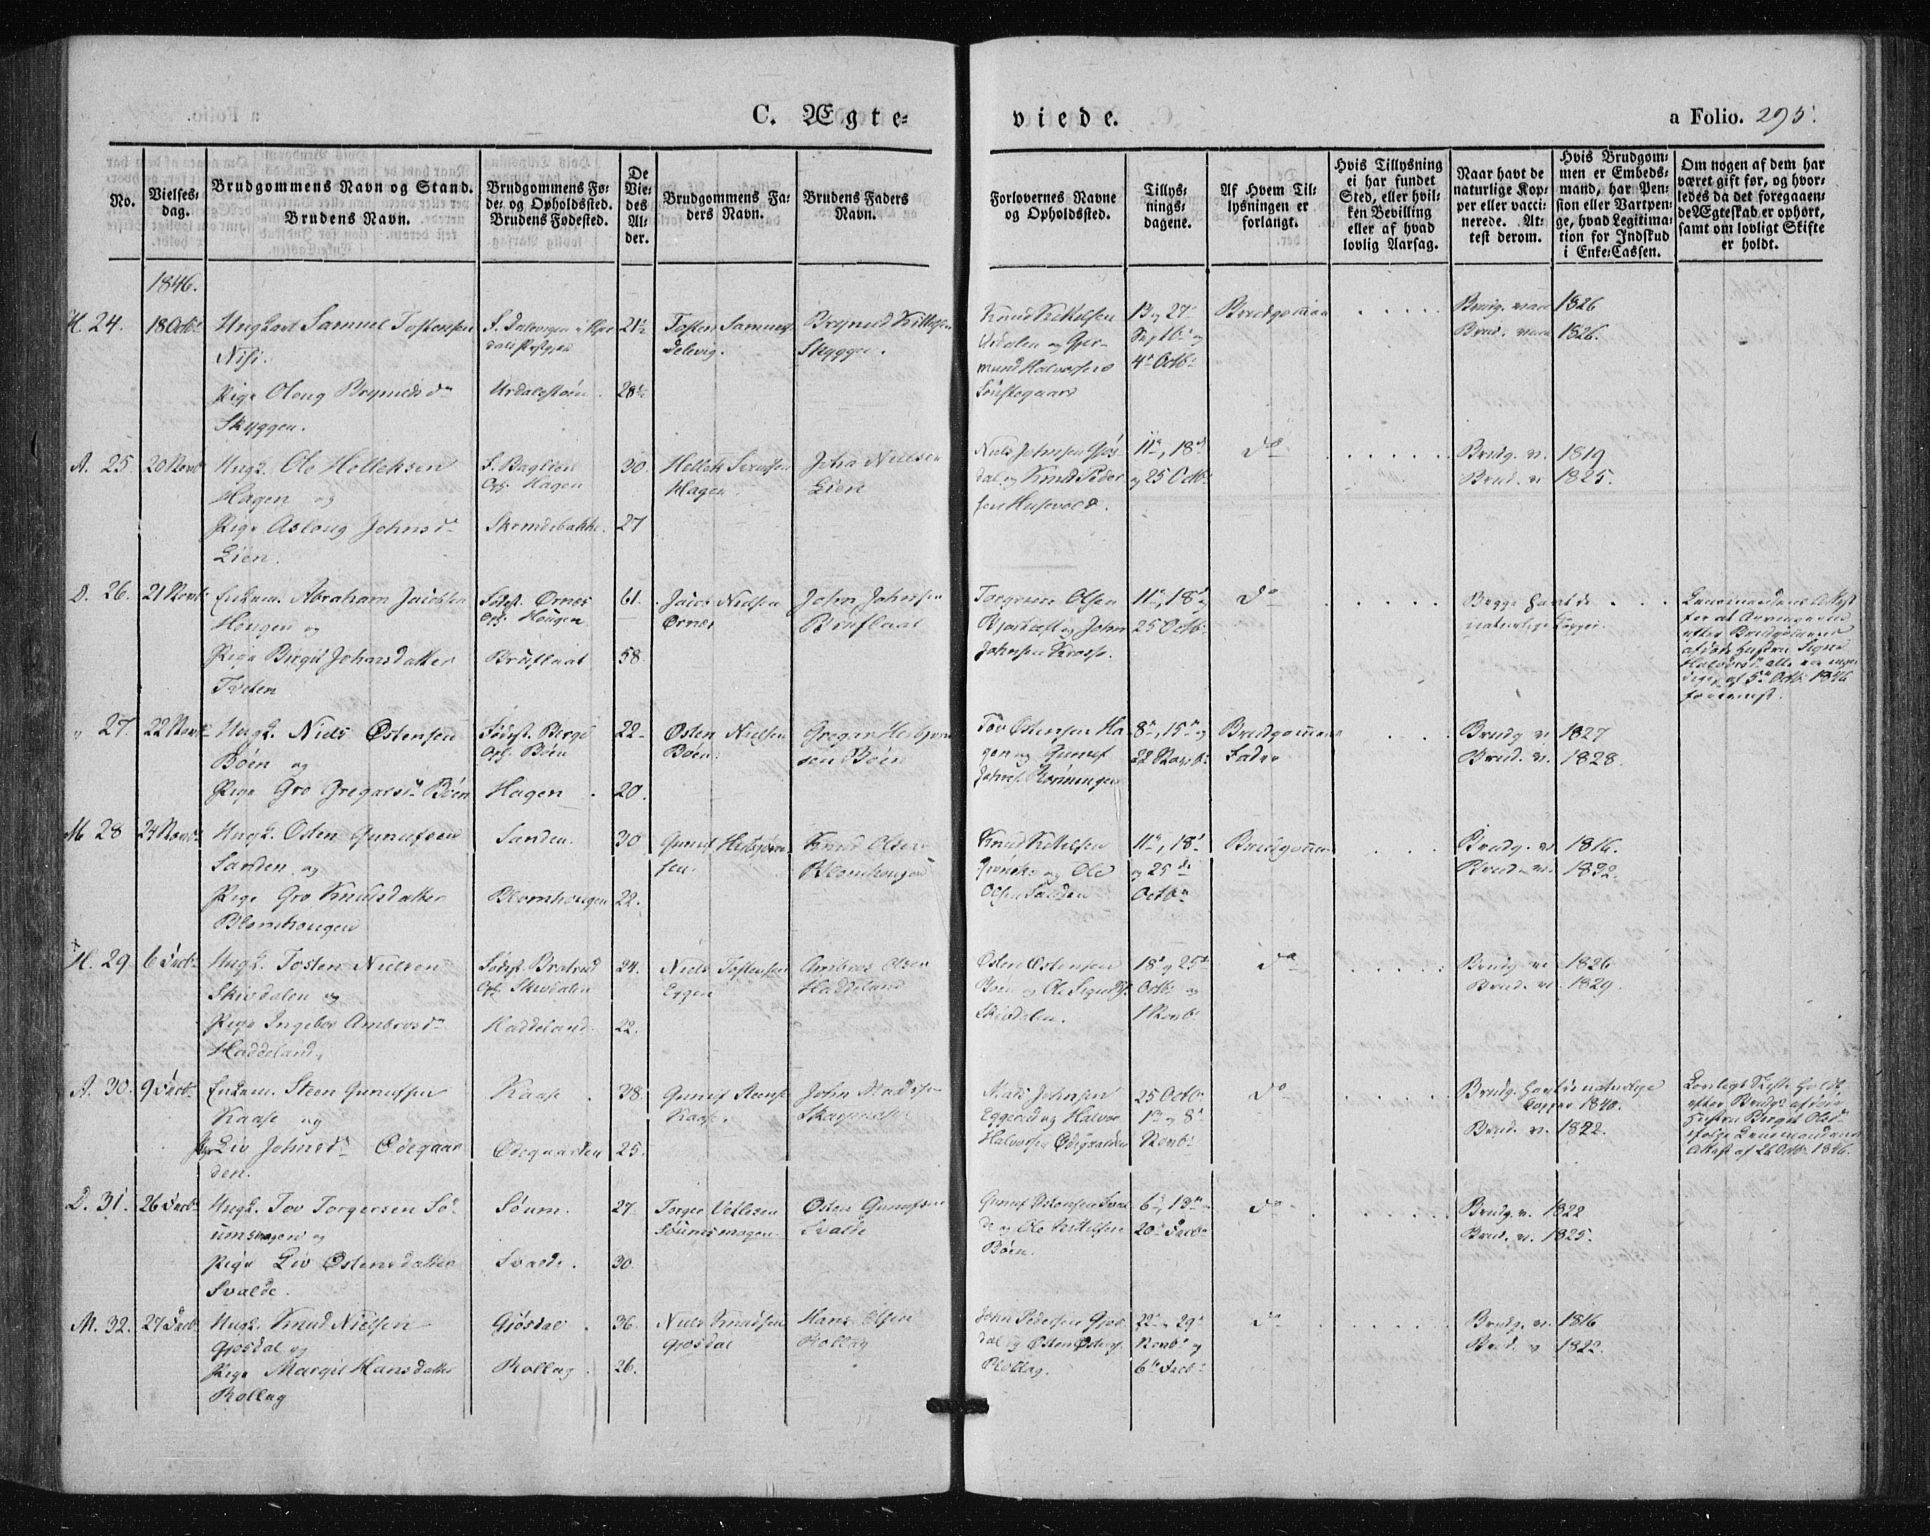 C. Ægte-
viede.
a Folio. 295.
No.
Vielses-
dag.
Brudgommens Navn og Stand.
Brudens Navn.
Brudgommens Fø-
de- og Opholdssted.
Brudens Fødested.
De
Vie-
des
Al-
der.
Brudgommens Fa-
ders Navn.
Brudens Faders
Navn.
Forlovernes Navne
og Opholdssted.
Tillys-
nings-
dagene.
Af Hvem Til-
lysningen er
forlangt.
Hvis Tillysning
ei har fundet
Sted, eller hvil-
ken Bevilling
eller af hvad
lovlig Aarsag.
Naar havt de
naturlige Kop-
per eller vacci-
nerede. At-
test derom.
Hvis Brudgom-
men er Embeds-
mand, har Pen-
sion eller Vartpen-
ge, hvad Legitima-
tion for Indskud
i Enke-Cassen.
Om nogen af dem har
været gift før, og hvor-
ledes da det foregaaen-
de Ægteskab er ophørt,
samt om lovligt Skifte
er holdt.
1846.
H. 24. 18 Octbr Ungkarl Samuel Tostensen
Pige Olaug Brynulds dr
Skyggen.
Urdalsstøen 28½
21½
Tosten
Brynild Kittelsen
Skyggen.
Knud Kittelsen
Urdalen og Gjer-
mund Halvorsen
13 og 27
4de Octbr
Brudgommen
Brudg. vacc 1826
Brud. vacc 1826.
A. 25 20 Novbr Ungk. Ole Helleksen
Hagen og
Pige Aslaug Johnsdr
Lien.
Oph. Hagen
30.
27
Hellek
Hagen.
John Nielsen
Lien
Niels Johnsen Gjøs
dal og Knud Peder
sen Husevold.
11te, 18de
og 25 Octbr
do
Brudg. v. 1819
Brud. v 1825.
D. 26. 21 Novbr Enkem. Abraham Jacobsen
Hougen og
Pige Birgit Johnsdatter
Tveten
Fødest. Ørnes
Oph. Hougen
Bruflaat
61.
58.
Jacob Nielsen
Ørnes
John Johnsen
Bruflaat
Torgrim Olsen
og John
Johnsen
11te, 18de
25 Octbr
do
Begge havt de
naturlige Kopper.
Lensmandens Attest
for at Arvingerne
efter Brudgommens
afdøde Hustru Signe
Halvorsdr alle ere myn
dige, af 5te Octbr 1846
foreviist.
" 27. 22 Novbr Ungk. Niels Østensen
Bøen og
Pige Gro Gregarsdr Bøen
Oph. Bøen
Hagen
22
20.
Østen Nielsen
Bøen.
Gregar Herbjørn
sen Bøen
Tov Østensen Ha-
gen og Gunuf
8de, 15de og
22 Novbr
Brudgommens
Fader
Brudg v 1827
Brud. v. 1828.
M. 28 24 Novbr Ungk. Østen Gunufsen
Sanden og
Pige Gro Knudsdatter
Blomhougen
Sanden.
Blomhougen
30
22.
Gunuf Herbjørn
sen.
Knud Olsen
Blomhougen
Knud Kittelsen
og Ole
Olsen Sanden
11te, 18de
og 25de
Octbr
Brudgommen
Brudg. v 1816.
Brud. v. 1832.
H. 29 6 Decbr Ungk. Tosten Nielsen
Skivdalen og
Pige Ingebor Ambrosdr
Haddeland.
Fødest. Bratrud
Oph. Skivdalen
Haddeland.
24.
22.
Niels Tostensen
Eggen
Ambros Olsen
Haddeland
Østen Østensen
Bøen og Ole Sigurds.
Skivdalen.
18de og 25de
Octbr og
1 Novbr
do
Brudg v. 1826
Brud. v. 1829.
A. 30. 9 Decbr Enkem. Steen Gunufsen
Kaase og
Pige Liv Johnsdr Ødegaar
den.
Kaase
Ødegaarden
38.
25.
Gunuf Steens.
Kaase.
John Madsen
Mads Johnsen
Eggerud og Halvor
Halvorsen Ødegaarden
25 Octbr
1te og 8de
Novbr
do
Brudg. havt de naturlige
Kopper 1840.
Brud. v. 1822.
Lovligt Skifte holdt
efter Brudg. afdøde
Hustru Birgit Olsdr
ifølge Lensmandens
Attest af 26 Octbr 1846.
D. 31. 26 Decbr Ungk. Tov Torgersen Sø-
umsmogen og
Pige Liv Østensdatter
Svalde.
Søum.
Svalde.
27
30.
Torger Vetlesen
Søumsmogen
Østen Gunufsen
Svalde
Gunuf Østensen Sval
de og Ole Kittelsen
Bøen.
6te, 13de
20de Decbr
do
Brudg. v. 1822
Brud. v. 1825.
M. 32. 27 Decbr Ungk. Knud Nielsen
Gjøsdal og
Pige Margit Hansdatter
Rollag
Gjøsdal
Rollag
36.
26.
Niels Knudsen
Gjøsdal
Hans Olsen
Rollag
John Pedersen Gjøs
dal og Østen Østens.
Rollag.
22de og 29de
Novbr og
6te Decbr
do
Brudg. v. 1816
Brud. v 1822.